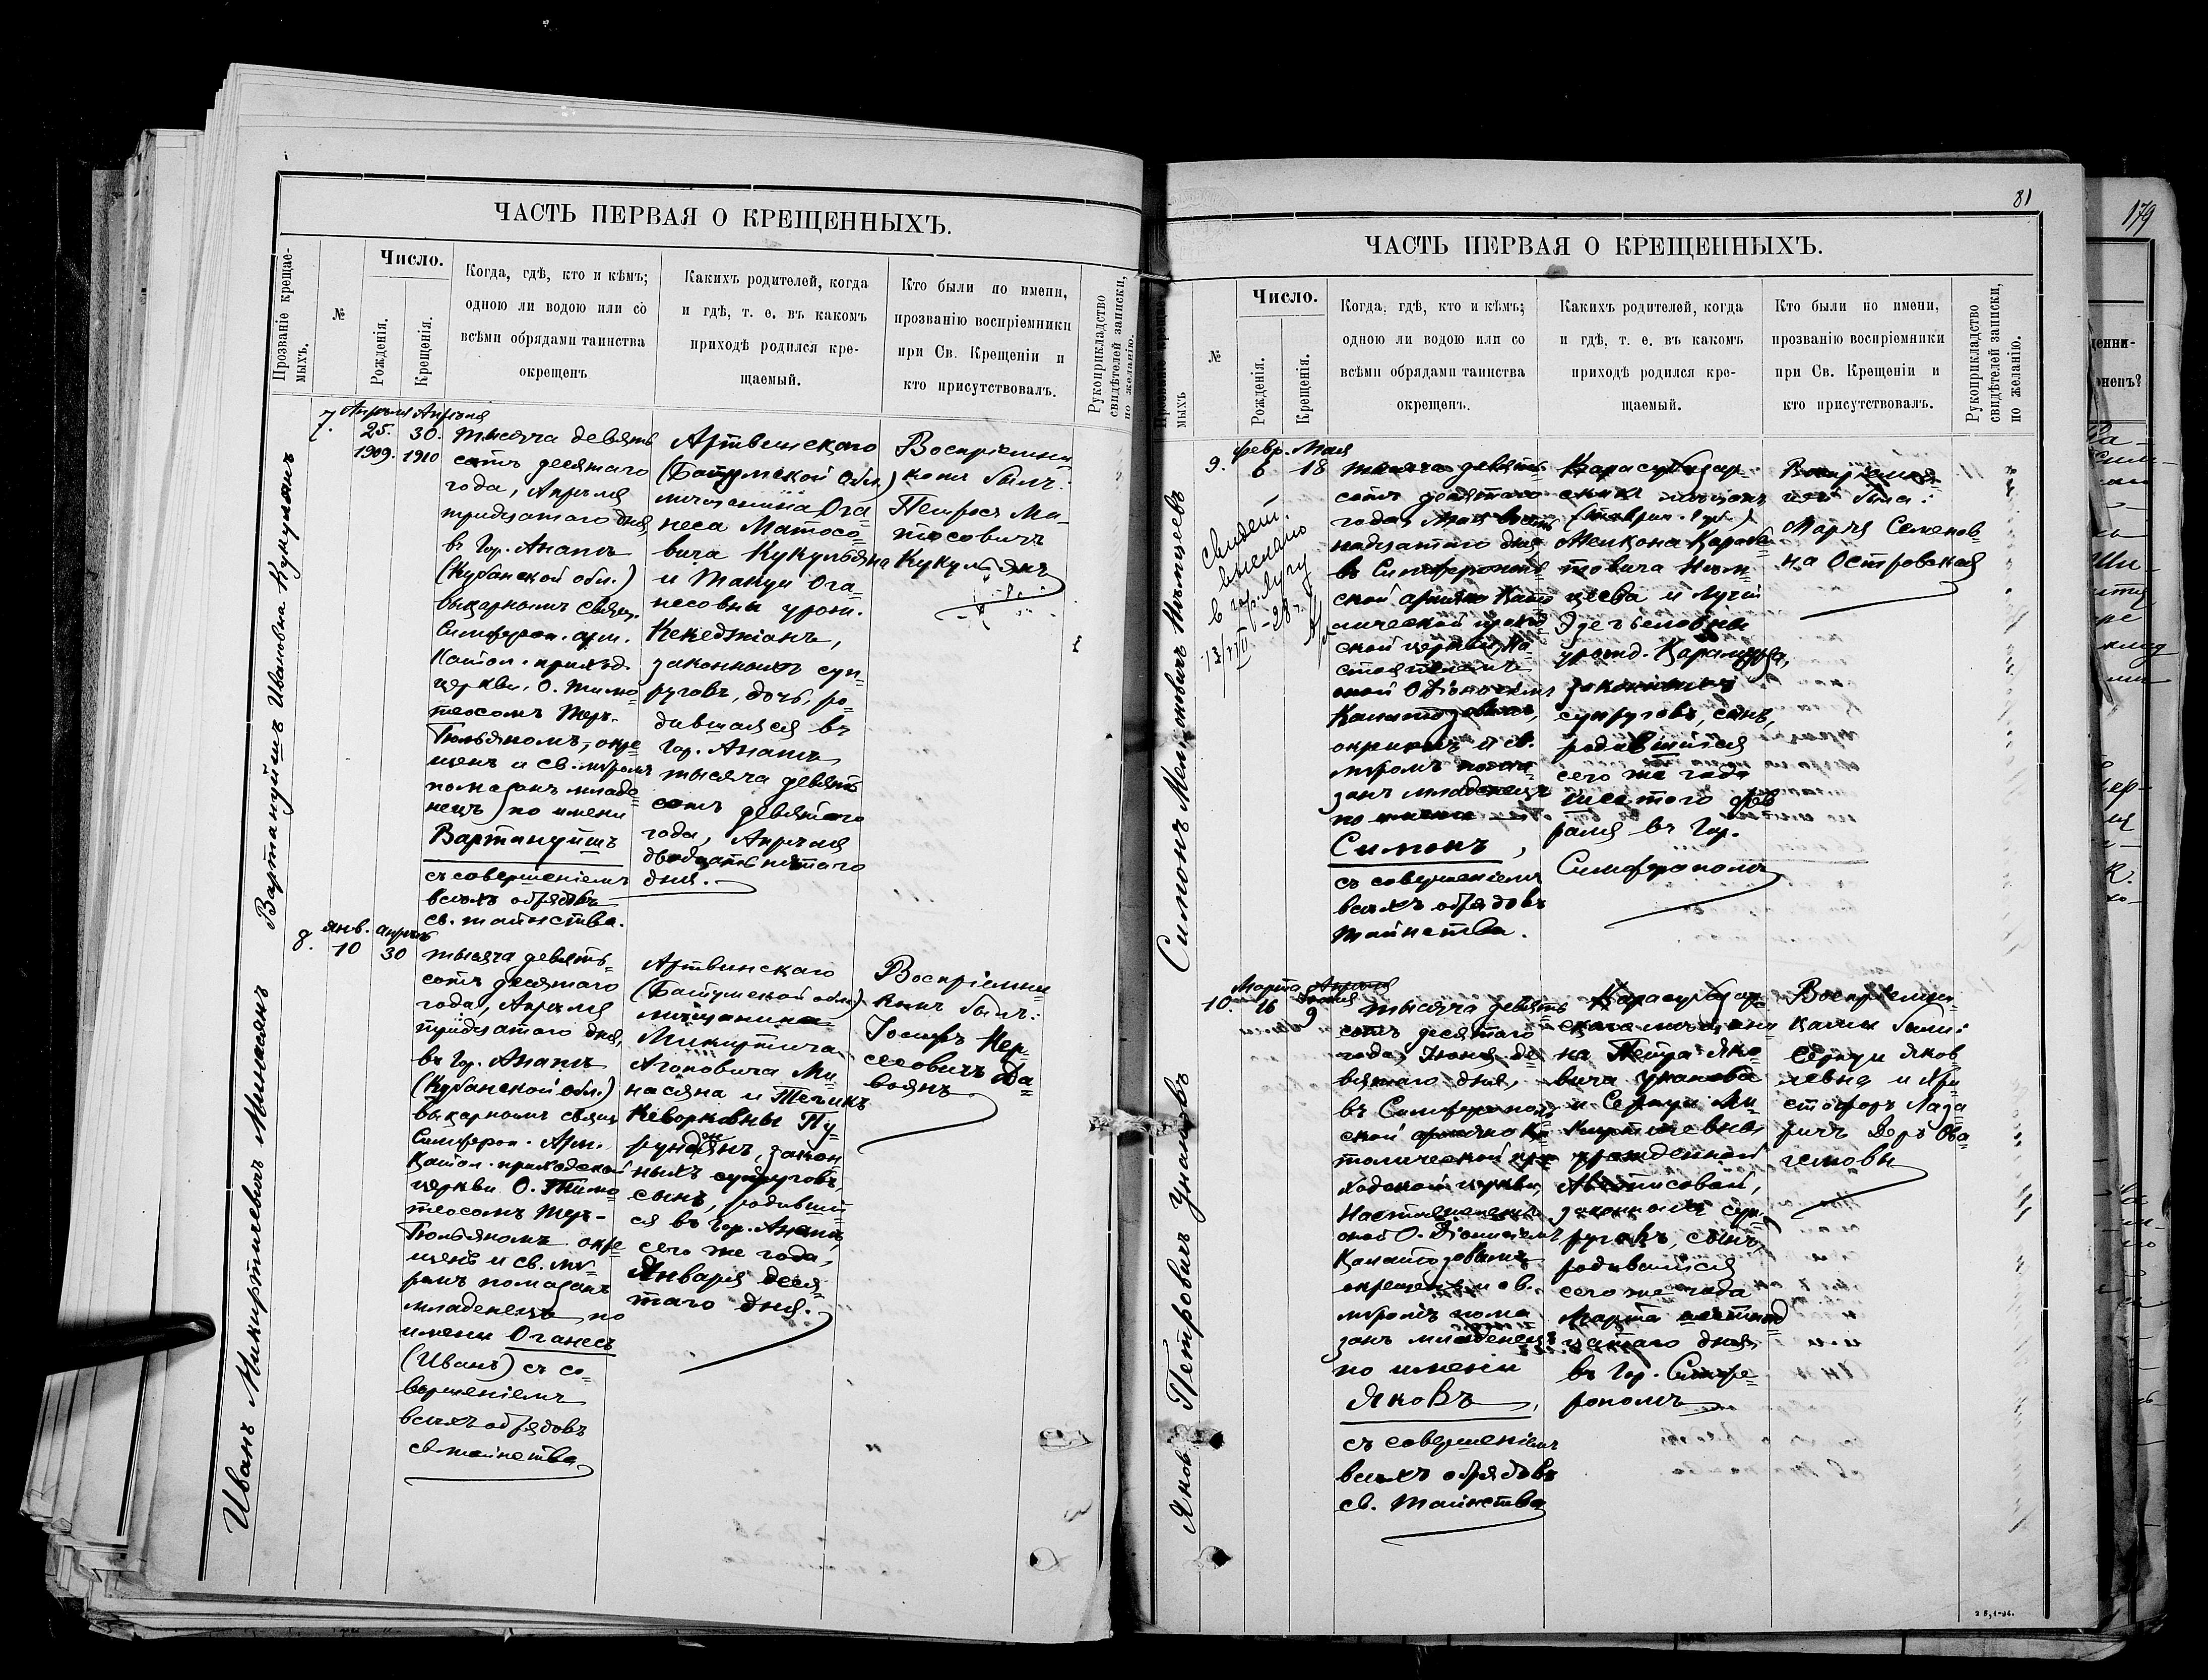 ЧАСТЬ ПЕРВАЯ О КРЕЩЕННЫХЪ.
Прозваніе крещае-
мыхъ.
№
Число.
Рожденія.
Крещенія.
Когда, гдѣ, кто и кѣмъ;
одною ли водою или со
всѣми обрядами таинства
окрещенъ
Какихъ родителей, когда
и гдѣ, т. е. въ какомъ
приходѣ родился кре-
щаемый.
Кто были по имени,
прозванію воспріемники
при Св. Крещеніи и
кто присутствовалъ.
Рукоприкладство
свидѣтелей записки,
по желанію.
Вартануйшъ Ивановна Кукульянъ
7.
Апрѣля
25.
1909.
Апрѣля
30.
1910
тысяча девять
сотъ десятаго
года, Апрѣля
тридцатаго дня
въ Гор. Анапѣ
(Кубанской обл.)
викарнымъ свящ.
Симфероп. арм.
Катол. приход.
церкви, О. Тимо
теосомъ Теръ-
Гюльяномъ, окре
щенъ и св. мѵромъ
помазанъ младе
нецъ по имени
Вартануйшъ
съ совершеніемъ
всѣхъ обрядовъ
св. таинства.
Артвинскаго
(Батумской обл.)
мѣщанина Ога
неса Матосо-
вича Кукульяна
и Такуи Ога-
несовны урож.
Кекеджіанъ,
законныхъ суп-
руговъ, дочь, ро-
дившаяся въ
Гор. Анапѣ
тысяча девять
сотъ девятаго
года, Апрѣля
двадцать пятаго
дня.
Воспріемни
комъ былъ:
Петросъ Ма-
тосовичъ
Кукульянъ
Иванъ Микиртичевичъ Минасянъ
8.
Янв.
10
Апрѣль
30
тысяча девять-
сотъ десятаго
года, Апрѣля
тридцатаго дня,
въ Гор. Анапѣ
(Кубанской обл.)
викарнымъ свящ
Симфероп. Арм.
Катол. приходской
церкви О. Тимо
теосомъ Теръ-
Гюльяномъ окре
щенъ и св. мѵ-
ромъ помазанъ
младенецъ по
имени Оганесъ
(Иванъ) съ со-
вершеніемъ
всѣхъ обрядовъ
св. таинства
Артвинскаго
(Батумской обл.)
мѣщанина
Микиртича
Агоповича Ми-
насяна и Тегикъ
Кеворковны Пу-
закон
ныхъ супруговъ,
сынъ, родивший
ся въ Гор. Анапѣ,
сего же года,
Января деся-
таго дня.
Воспріемни-
комъ былъ:
Іосифъ Нер-
сесовичъ Да-
воянъ
81
ЧАСТЬ ПЕРВАЯ О КРЕЩЕННЫХЪ.
№
Число.
Рожденія.
Крещенія.
Когда, гдѣ, кто и кѣмъ;
одною ли водою или со
всѣми обрядами таинства
окрещенъ.
Какихъ родителей, когда
и гдѣ, т. е. въ какомъ
приходѣ родился кре-
щаемый.
Кто были по имени,
прозванію воспріемники
при Св. Крещеніи и
кто присутствовалъ.
Рукоприкладство
свидѣтелей записки,
по желанію.
Симонъ Мелконовичъ Нѣмцевъ
9.
Февр.
6
Мая
18
тысяча девять
сотъ десятаго
года, Мая восем
надцатаго дня
въ Симферополь
ской армяно Като
лической приход
ской церкви, На
стоятелемъ
оной О. Діонисіемъ
окрещенъ и св.
мѵромъ пома-
занъ младенецъ
по имени
Симонъ,
съ совершеніемъ
всѣхъ обрядовъ
таинства.
Карасубазар-
(Таврич. губ.)
Мелкона Карапе
товича Нѣм-
цева и Лучіи
урожд.
законныхъ
супруговъ, сынъ,
родившійся
сего же года
шестого фев
раля въ Гор.
Симферополѣ
Воспріемни-
цей была:
Марія Семенов-
на Островская
Свидет.
выслано
в гор.
Яковъ Петровичъ Унановъ
10.
Марта
16
Іюня
9
тысяча девять
сотъ десятаго
года, Іюня де
вятаго дня,
въ Симферополь
ской армяно Ка
толической при
ходской церкви,
Настоятелемъ
оной О. Діонисіемъ
окрещенъ и св.
мѵромъ пома
занъ младенецъ
по имени
Яковъ,
съ совершеніемъ
всѣхъ обрядовъ
св. таинства
Карасубазар
скаго мѣщани
на Петра Яко
вича Унанова
и Серпуи Ми-
киртичевны
урожденной
Аветисовой,
законныхъ суп-
руговъ, сынъ,
родившійся
сего же года
Марта шестнад
цатаго дня
въ Гор. Симфе-
рополѣ
Воспріемни-
ками были:
Серпуи Яков
левна и Хри
стофоръ Лаза
ричъ
179
2 5, 1-04.